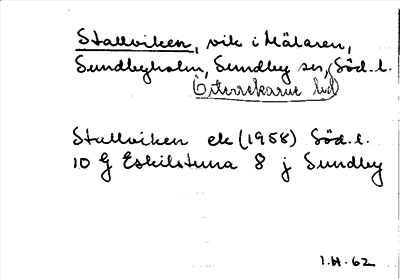 Stallviken, vik i Mälaren,
Sundbyholm, Sundby sn, Söd.l.
Österrekarne hd
Stallviken ek (1958) Söd.l.
10 G Eskilstuna 8 j Sundby
1.H.62